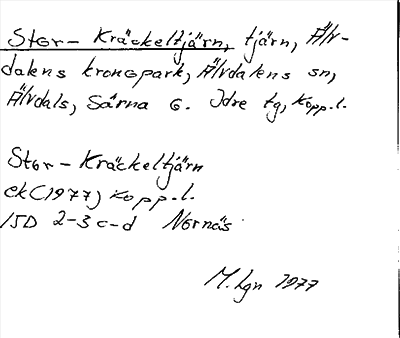 Stor-Kräckeltjärn, tjärn, Älv-
dalens kronopark, Älvdalens sn,
Älvdals, Särna o. Idre tg, Kopp.l.
Stor-Kräckeltjärn
ek (1977) Kopp.l.
15D 2-3 c-d Nornäs
M.Lgn 1977